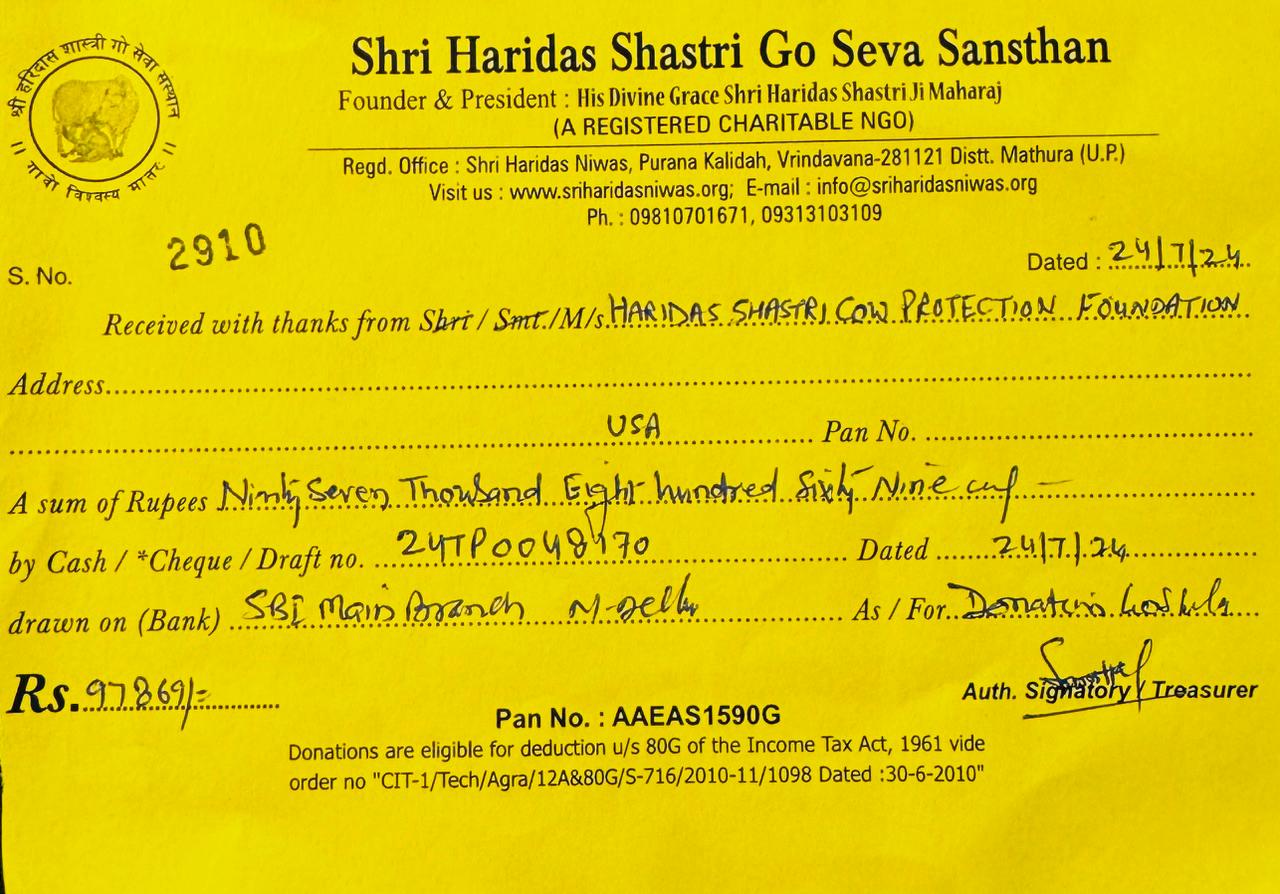 श्री हरिदास शास्त्री गो सेवा संस्थान
।। गावो विश्वस्य मातरः ।।
Shri Haridas Shastri Go Seva Sansthan
Founder & President : His Divine Grace Shri Haridas Shastri Ji Maharaj
(A REGISTERED CHARITABLE NGO)
Regd. Office : Shri Haridas Niwas, Purana Kalidah, Vrindavana-281121 Distt. Mathura (U.P.)
Visit us : www.sriharidasniwas.org; E-mail : info@sriharidasniwas.org
Ph. : 09810701671, 09313103109
S. No. 2910 Dated : 24/7/24
Received with thanks from Shri / Smt./M/s. HARIDAS SHASTRI COW PROTECTION FOUNDATION
Address
USA Pan No.
A sum of Rupees Ninty Seven Thousand Eight hundred Sixty Nine
by Cash / *Cheque / Draft no. Dated 24/7/24
drawn on (Bank) SBI Main Branch N-Delhi As / For Donation
Rs. 97869/=
Auth. Signatory / Treasurer
Pan No. : AAEAS1590G
Donations are eligible for deduction u/s 80G of the Income Tax Act, 1961 vide
order no "CIT-1/Tech/Agra/12A&80G/S-716/2010-11/1098 Dated :30-6-2010"